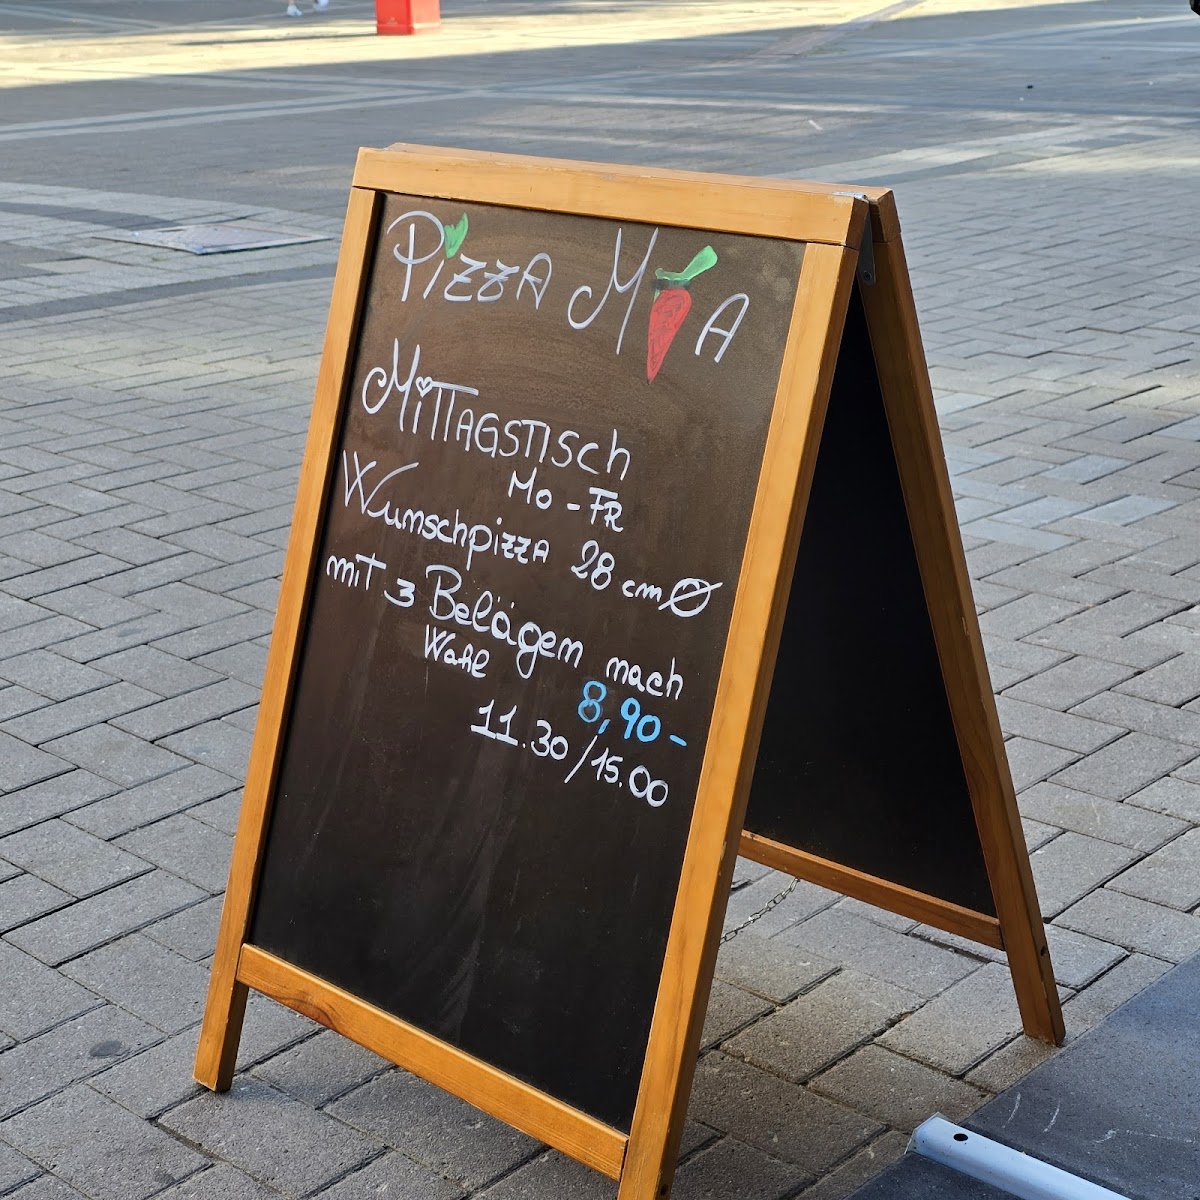 PizzA MiA
MiTTAGSTISCh
Mo - FR
Wunschpizza 28 cm Ø
mit 3 Belägen nach
Wahl
8,90-
11.30/15.00